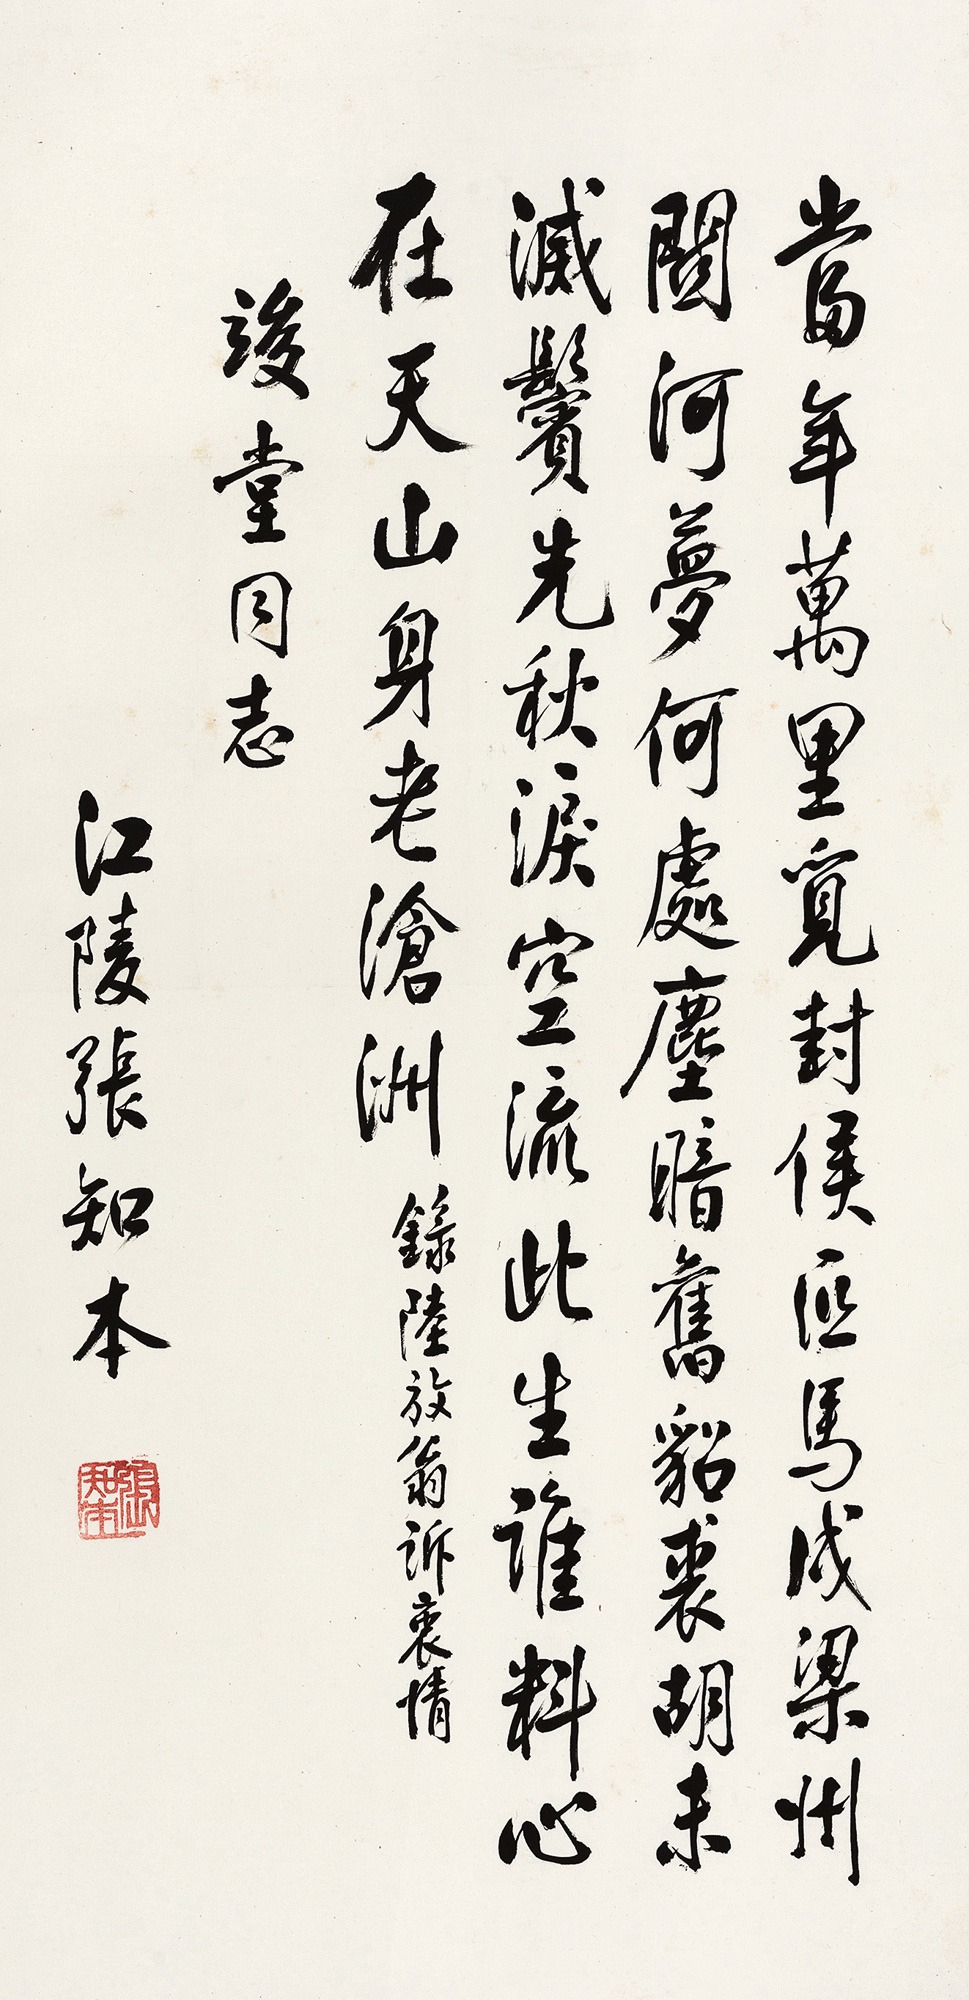 當年萬里覓封侯匹馬戍梁州
關河夢何處塵暗舊貂裘胡未
滅鬢先秋淚空流此生誰料心
在天山身老滄洲 錄陸放翁訴衷情
竣堂同志
江陵張知本
張知本